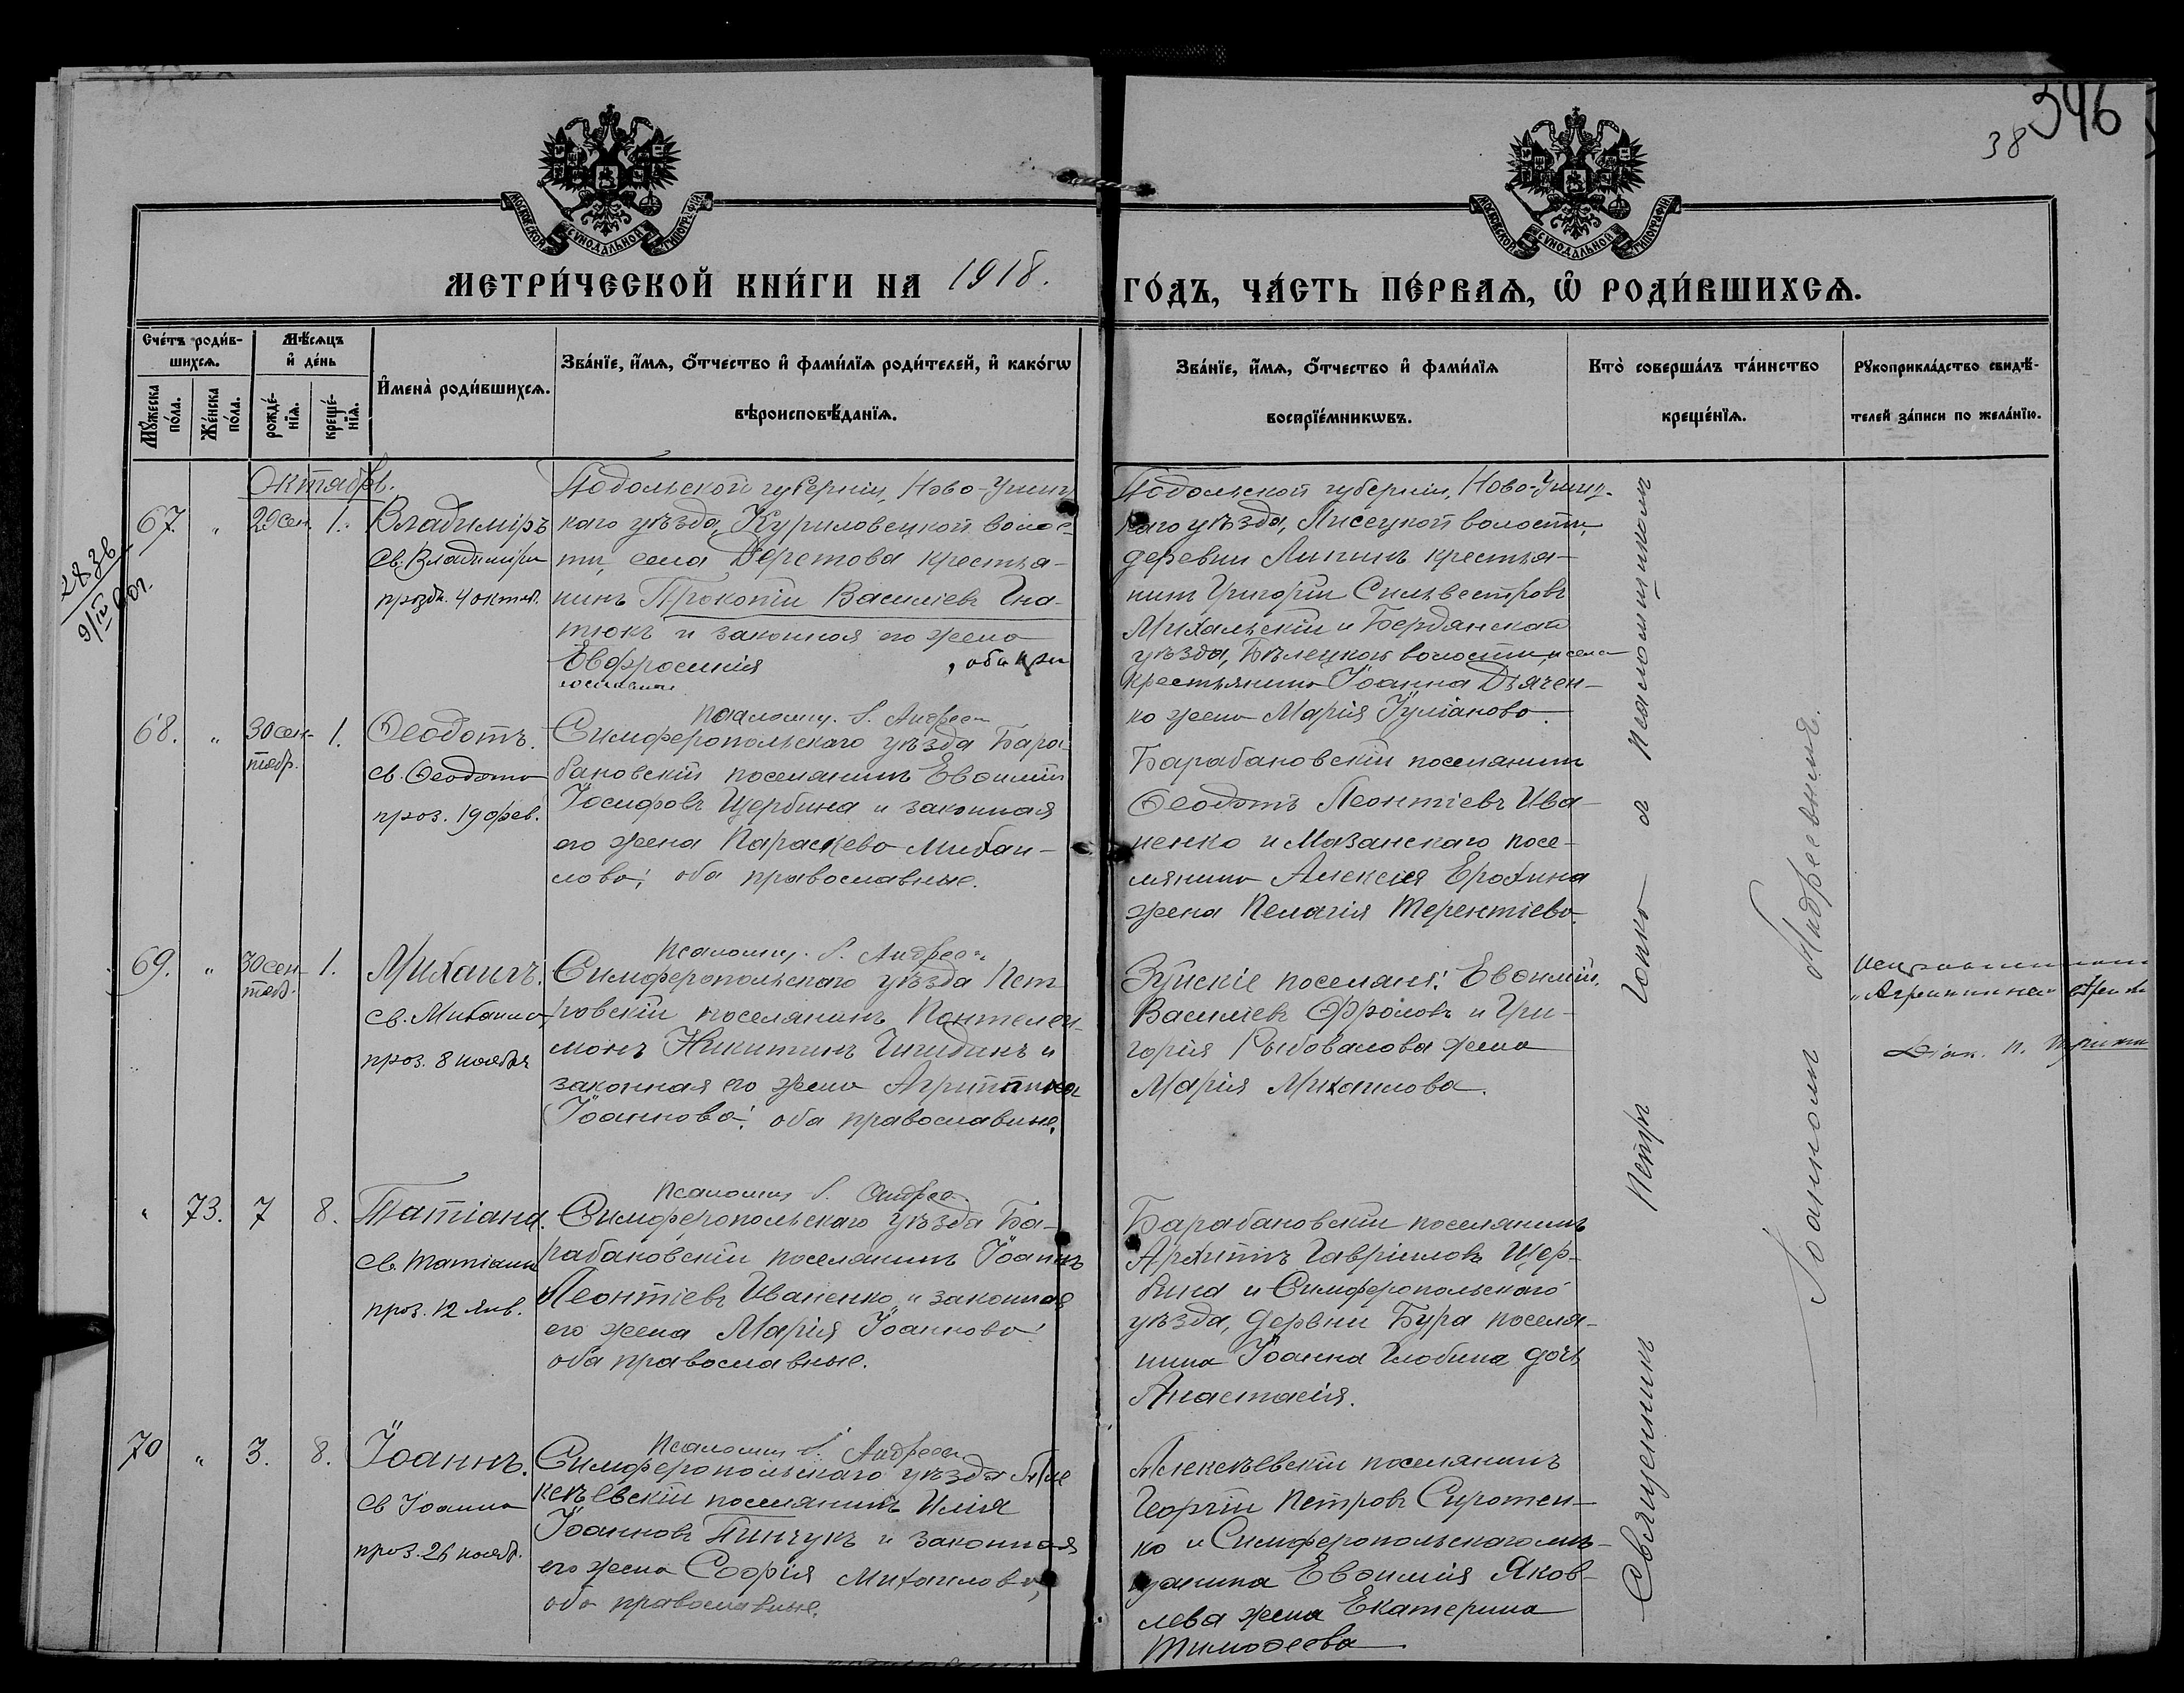 346
38
МОСКОВСКОЙ СѴНОДАЛЬНОЙ ТИПОГРАФІИ
МОСКОВСКОЙ СѴНОДАЛЬНОЙ ТИПОГРАФІИ
МЕТРИ́ЧЕСКОЙ КНИ́ГИ НА 1918.
ГО́ДЪ, ЧА́СТЬ ПЕ́РВАѦ, Ѡ҆ РОДИ́ВШИХСѦ.
Сче́тъ роди́в-
шихсѧ.
Мꙋ́жеска по́ла.
Же́нска по́ла.
Мѣ́сѧцъ
и҆ де́нь
рожде́-
нїѧ.
креще́-
нїѧ.
И҆мена̀ роди́вшихсѧ.
Зва́нїе, и҆́мѧ, ѻ҆́тчество и҆ фами́лїѧ роди́телей, и҆ како́гѡ
вѣроисповѣ́данїѧ.
Зва́нїе, и҆́мѧ, ѻ҆́тчество и҆ фами́лїѧ
воспрїе́мникѡвъ.
Кто̀ соверша́лъ та́инство
креще́нїѧ.
Рꙋкоприкла́дство свидѣ́-
телей за́писи по жела́нїю.
Октябрь.
67. " 29 сен. 1.
Владиміръ
св. Владиміра
празд. 4 октяб.
Подольской губерніи, Ново-Ушиц
каго уѣзда, Куриловецкой волос-
ти, села Дерстова крестья-
нинъ Прокопій Василіевъ Гна-
тюкъ и законная его жена
Евфросинія , оба пра
вославные
Подольской губерніи, Ново-Ушиц-
каго уѣзда, Лисецкой волости,
деревни Липинъ крестья-
нинъ Григорій Сильвестровъ
Михальскій и Бердянскаго
уѣзда, Бѣлецкой волости, и села
крестьянина Іоанна Дьячен-
ко жена Марія Іуліанова.
68. " 30 сен-
тябр. 1.
Ѳеодотъ.
св. Ѳеодота
праз. 19 фев.
Псаломщ. І. Андреев
Симферопольскаго уѣзда Бара-
бановскій поселянинъ Евѳимій
Іосифовъ Щербина и законная
его жена Параскева Михаи-
лова; оба православные.
Барабановскій поселянинъ
Ѳеодотъ Леонтіевъ Ива-
ненко и Мазанскаго посе-
лянина Алексія Ерохина
жена Пелагія Терентіева.
69. " 30 сен-
тяб. 1.
Михаилъ.
св. Михаила
праз. 8 ноября
Псаломщ. І. Андреев
Симферопольскаго уѣзда Пет
ровскій поселянинъ Пантелеи-
монъ Никитинъ и
законная его жена Агриппина
Іоаннова; оба православные.
Зуйскіе поселяне: Евѳимій
Василіевъ Фроловъ и Гри-
горія Рыбовалова жена
Марія Михаилова.
" 73. 7 8.
Татіана.
св. Татіаны
праз. 12 янв.
Псаломщ І. Андреев
Симферопольскаго уѣзда Ба-
рабановскій поселянинъ Іоаннъ
Леонтіевъ Иваненко и законная
его жена Марія Іоаннова:
оба православные.
Барабановскій поселянинъ
Архиппъ Гавріиловъ Щер-
бина и Симферопольскаго
уѣзда, деревни Бура поселя-
нина Іоанна Глобина дочь
Анастасія.
70 " 3. 8.
Іоаннъ.
св Іоанна
праз. 26 нояб.
Псаломщ І. Андреев
Симферопольскаго уѣзда Але
ксѣевскій поселянинъ Илія
Іоанновъ Пинчукъ и законная
его жена Софія Михаилова,
оба православные.
Алексѣевскій поселянинъ
Георгій Петровъ Сиротен-
ко и Симферопольскаго мѣ-
щанина Евѳимія Яков-
лева жена Екатерина
Тимоѳеева
Священникъ Петръ съ Псаломщикомъ
Іоанномъ Андреевымъ.
"Агриппина"